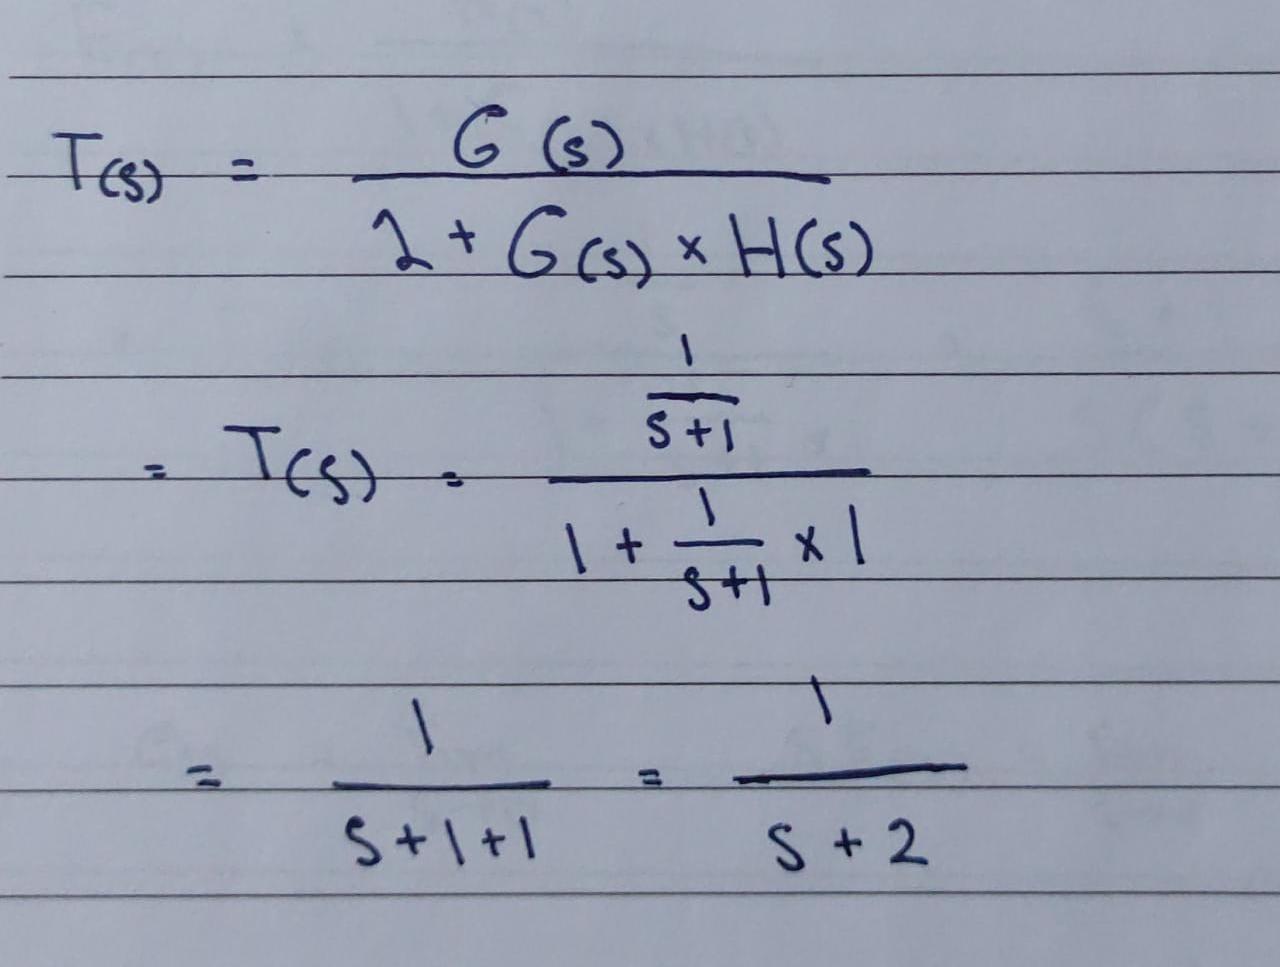 T(s) = G(s) / 2 + G(s) × H(s)
= T(s) = 1/s+1 / 1 + 1/s+1 × 1
= 1 / s+1+1 = 1 / s+2